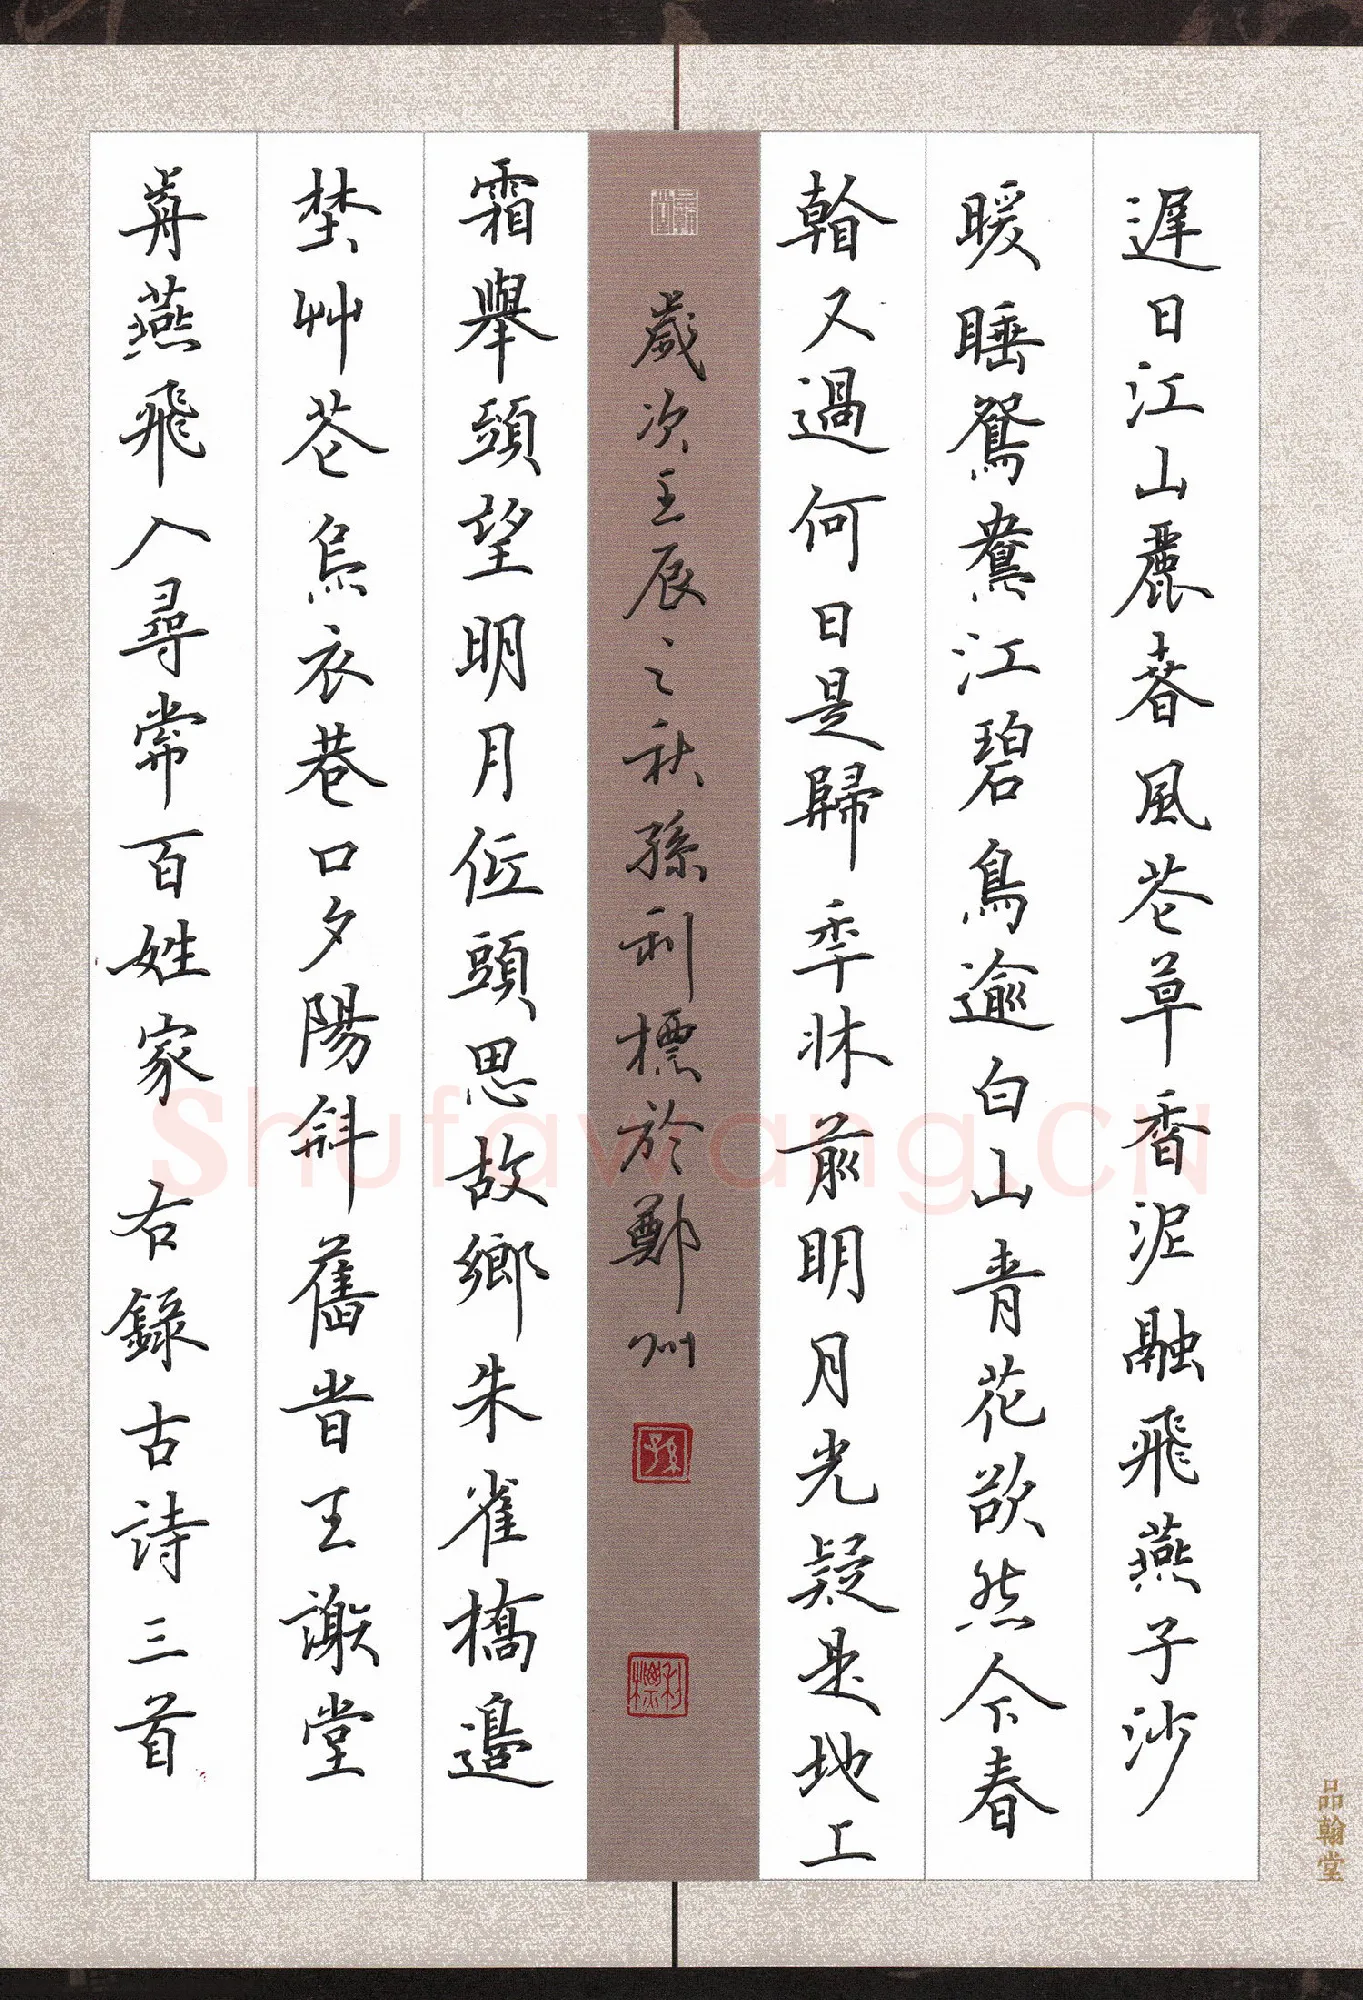 遲日江山麗春風花草香泥融飛燕子沙
暖睡鴛鴦江碧鳥逾白山青花欲然今春
看又過何日是歸年牀前明月光疑是地上
歲次壬辰之秋孫利標於鄭州
孫
利標
霜舉頭望明月低頭思故鄉朱雀橋邊
埜艸花烏衣巷口夕陽斜舊旹王謝堂
前燕飛入尋常百姓家 右錄古詩三首
品翰堂
Shufawang.CN